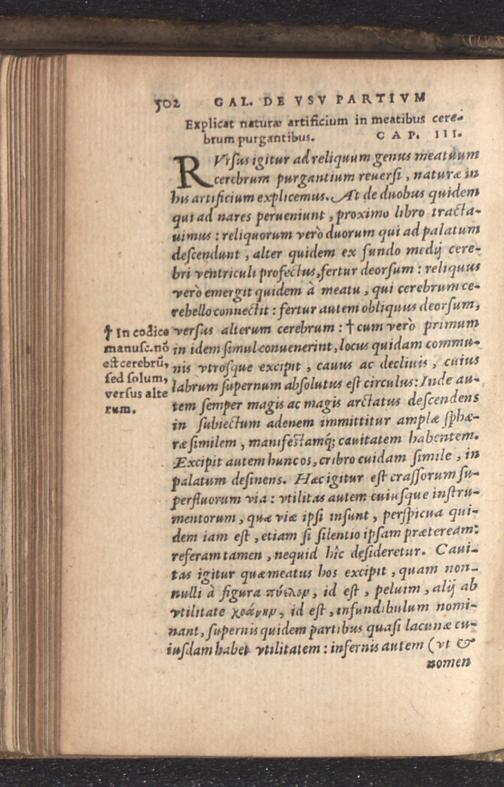 502 GAL. DE VSV PARTIVM
Explicat naturæ artificium in meatibus cere-
brum purgantibus. CAP. III.
RVrsus igitur ad reliquum genus meatuum
cerebrum purgantium reuersi, naturæ in
his artificium explicemus. At de duobus quidem
qui ad nares perueniunt, proximo libro tracta-
uimus: reliquorum verò duorum qui ad palatum
descendunt, alter quidem ex fundo medij cere-
bri ventriculi profectus, fertur deorsum: reliquus
verò emergit quidem à meatu, qui cerebrum ce-
rebello connectit: fertur autem obliquus deorsum,
versus alterum cerebrum: † cum verò primum
in idem simul conuenerint, locus quidam commu-
nis vtrosque excipit, cauus ac decliuis, cuius
labrum supernum absolutus est circulus: Inde au-
tem semper magis ac magis arctatus descendens
in subiectum adenem immittitur amplæ sphæ-
ræ similem, manifestamq; cauitatem habentem.
Excipit autem hunc os, cribro cuidam simile, in
palatum desinens. Hæc igitur est crassorum su-
perfluorum via: vtilitas autem cuiusque instru-
mentorum, quæ viæ ipsi insunt, perspicua qui-
dem iam est, etiam si silentio ipsam præteream:
referam tamen, nequid hîc desideretur. Caui-
tas igitur quæ meatus hos excipit, quam non-
nulli à figura πύελον, id est, peluim, alij ab
vtilitate χοάνην, id est, infundibulum nomi-
nant, supernis quidem partibus quasi lacunæ cu-
iusdam habet vtilitatem: infernis autem (vt &
nomen
† In codice
manusc. nō
est cerebrū,
sed solum,
versus alte
rum.